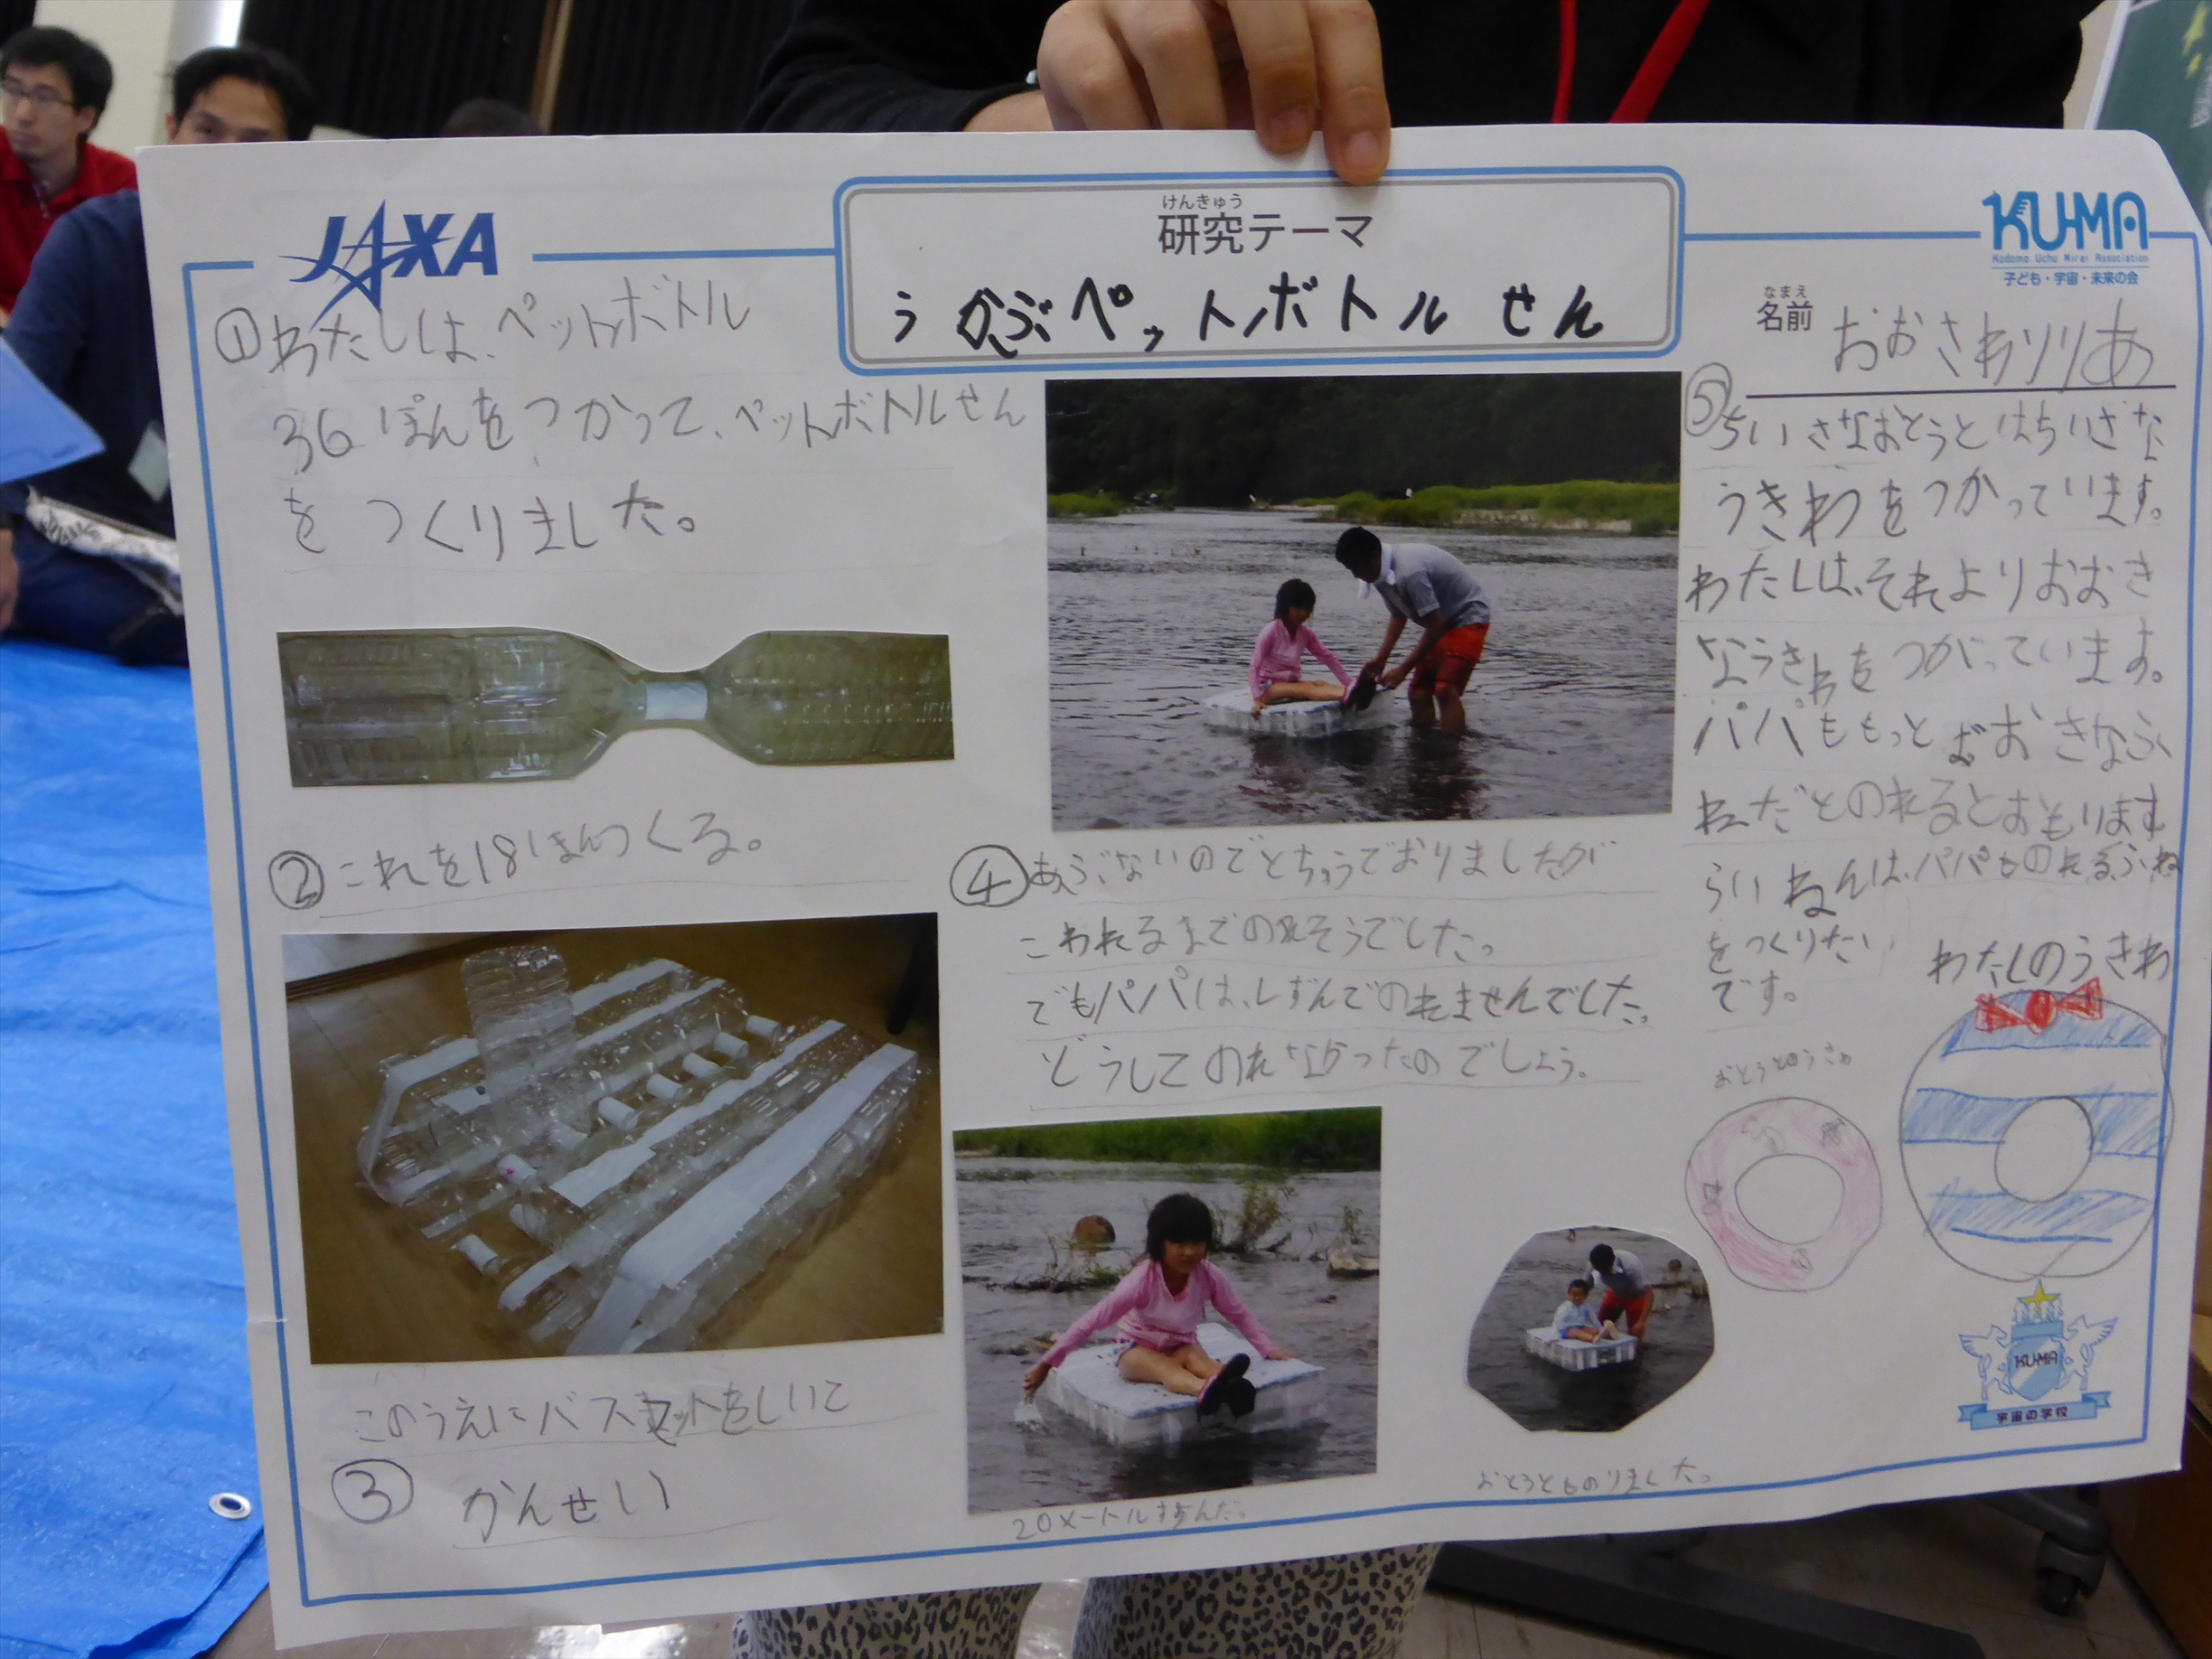 JAXA
けんきゅう
研究テーマ
うかぶペットボトルせん
KU-MA
Kodomo Uchu Mirai Association
子ども・宇宙・未来の会
なまえ
名前 おおさわりりあ
①わたしは、ペットボトル
36ぽんをつかって、ペットボトルせん
をつくりました。
②これを18ほんつくる。
このうえにバスマットをしいて
③かんせい
④あぶないのでとちゅうでおりましたが
こわれるまでのれそうでした。
でもパパは、しずんでのれませんでした。
どうしてのれなかったのでしょう。
20メートルすすんだ。
おとうとものりました。
⑤ちいさなおとうとはちいさな
うきわをつかっています。
わたしは、それよりおおき
なうきわをつかっています。
パパももっとおおきなふ
ねだとのれるとおもります
らいねんは、パパものれるふね
をつくりたい
です。
わたしのうきわ
おとうとのうきわ
KU-MA
宇宙の学校